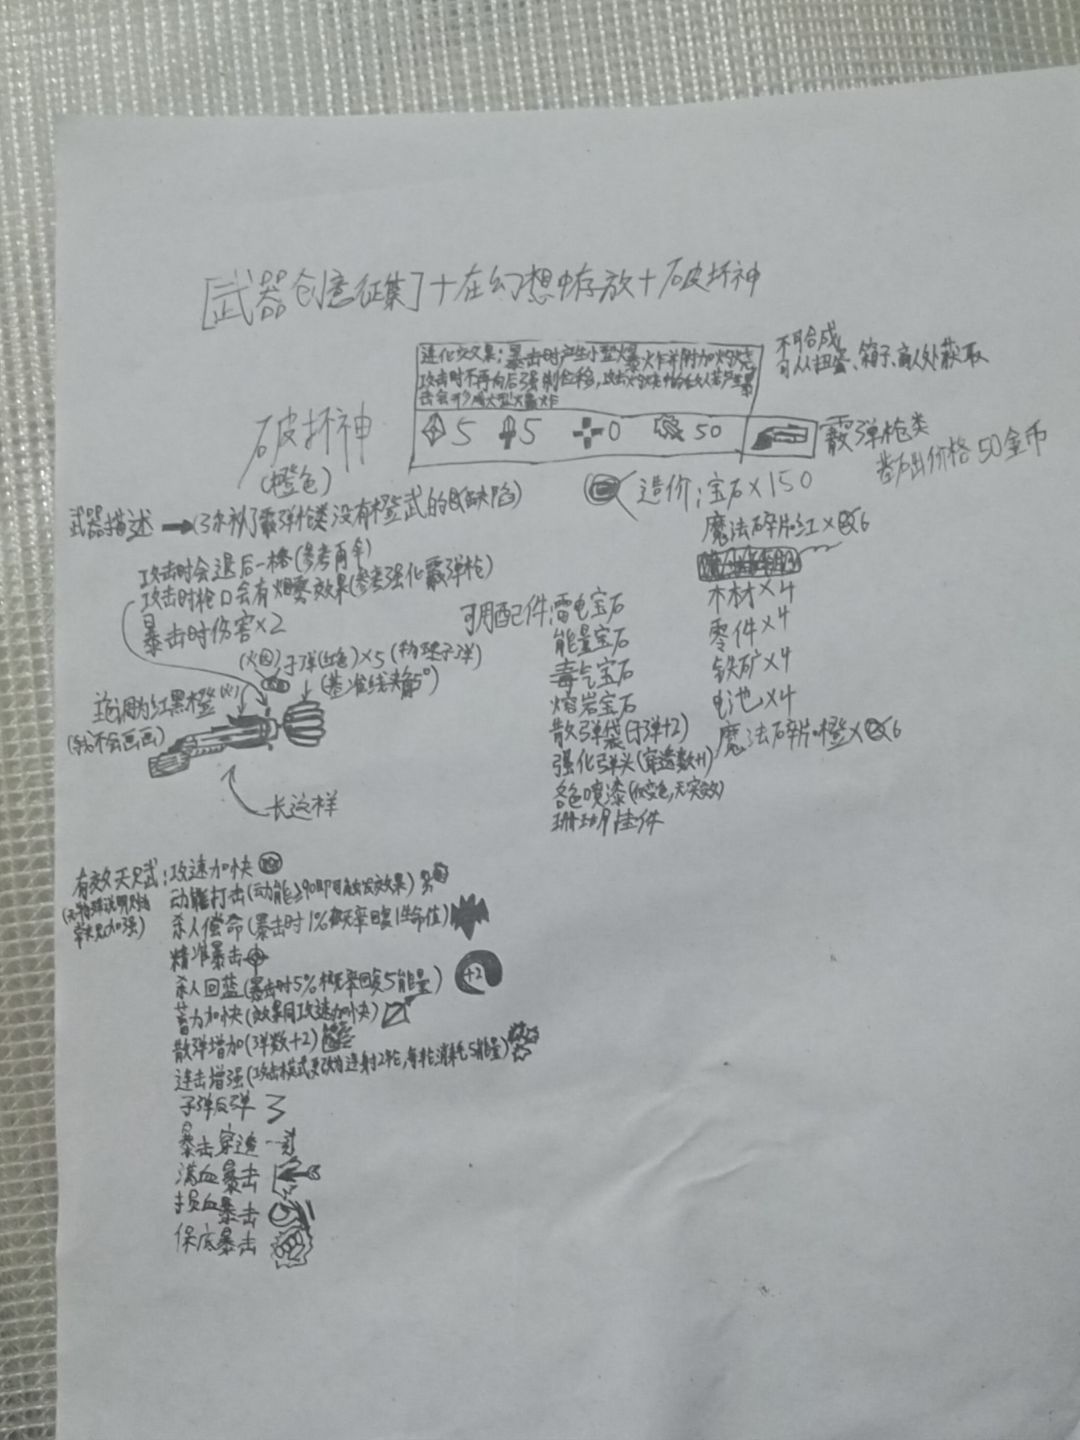 [武器创意征集]+在幻想中存放+破坏神
进化效果:暴击时产生小型爆炸并附加灼烧
攻击时不再向后强制位移,攻击灼烧中的敌人若产生暴
击会形成大型爆炸
不可合成
可从扭蛋、箱子、商人处获取
5 5 0 50
霰弹枪类
卖出价格50金币
破坏神
(橙色)
造价:宝石×150
魔法碎片红×6
木材×4
零件×4
铁矿×4
电池×4
魔法碎片橙×6
武器描述
(弥补了霰弹枪类没有橙武的缺陷)
攻击时会退后一格
攻击时枪口会有烟雾效果(参考强化霰弹枪)
暴击时伤害×2
子弹(红色)×5(物理子弹)
主色调为红黑橙
(我不会画画)
长这样
可用配件:雷电宝石
能量宝石
毒气宝石
熔岩宝石
散弹袋(子弹+2)
强化弹头(穿透数+1)
各色喷漆(仅变色,无实效)
挂件
有效天赋:攻速加快
动能打击(动能≥90即可触发效果)
杀人偿命(暴击时1%概率回复1生命值)
精准暴击
杀人回蓝(暴击时5%概率回复5能量)
+2
蓄力加快(效果同攻速加快)
散弹增加(弹数+2)
连击增强(攻击模式更改为连射2轮,每轮消耗5能量)
子弹反弹
暴击穿透
满血暴击
损血暴击
保底暴击